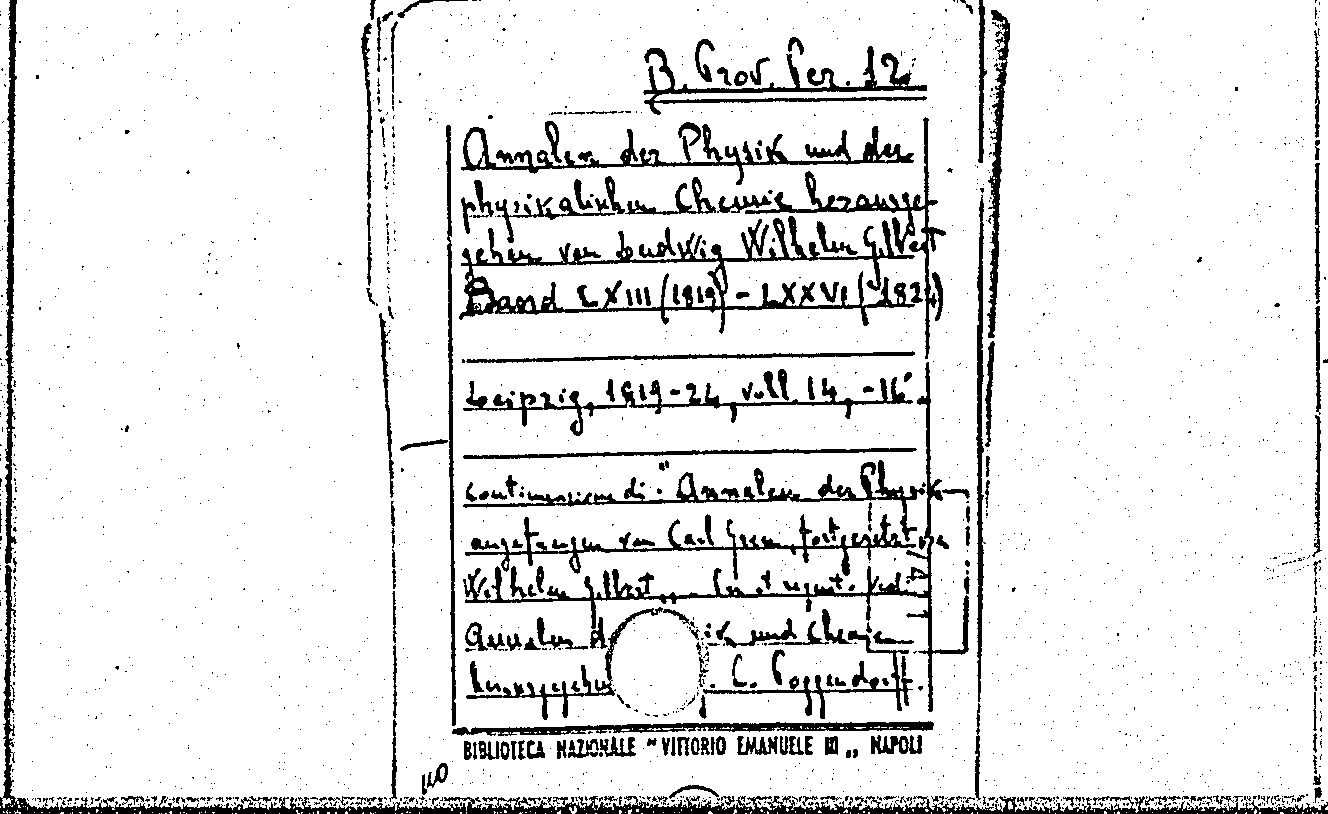 B. Prov. Per. 12
Annalen der Physik und der
physikalischen Chemie herausge-
geben von Ludwig Wilhelm Gilbert
Band LXIII (1819) - LXXVI (1824)
Leipzig, 1819-24, voll. 14, -16°.
Continuazione di: "Annalen der Physik
angefangen von Carl Gren, fortgesetzt von
Wilhelm Gilbert
Annalen d ik und Chemie
herausgegeben . C. Poggendorff.
BIBLIOTECA NAZIONALE "VITTORIO EMANUELE III„ NAPOLI